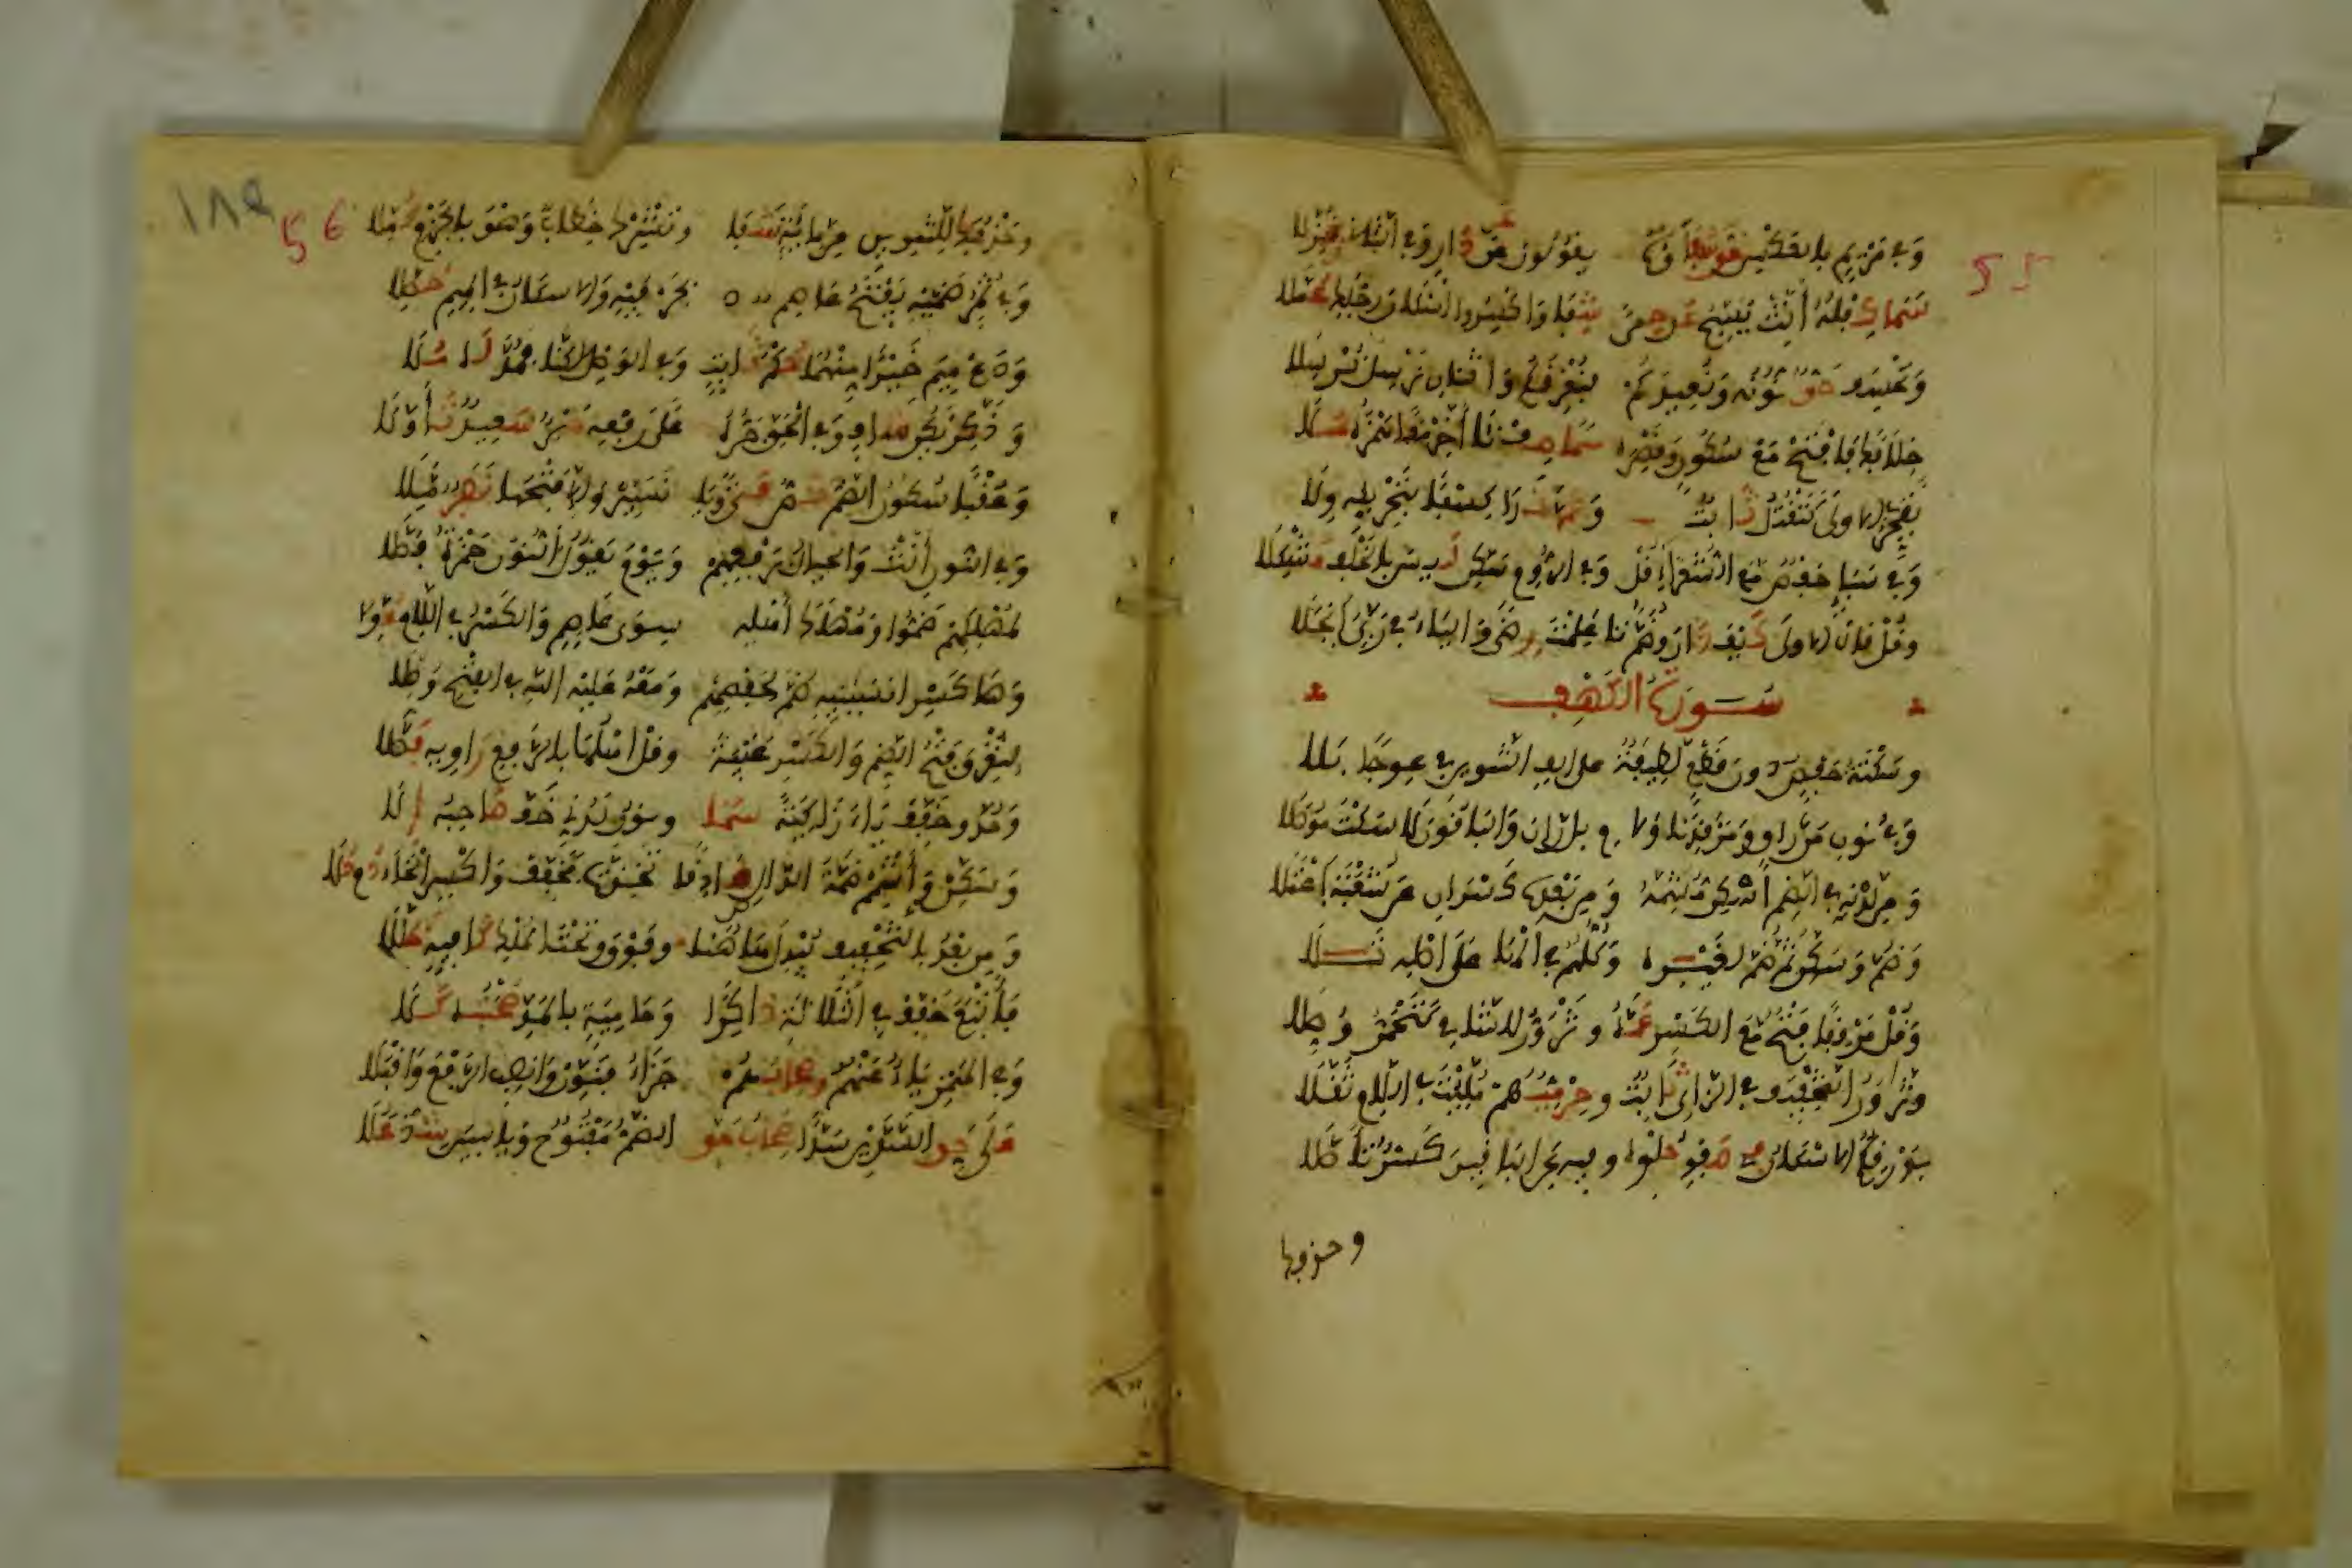 55
وفي مريم بالعكس حق شفاؤه يقولون عن دار وفي الثان نزلا
سما كفله أنث يسبح عن حمى شفا واكسروا إسكان رجلك عملا
ويخسف حق نونه ويعيدكم فيغرقكم واثنان يرسل نرسلا
خلافك فافتح مع سكون وقصره سما صف نأى أخر معا همزه ملا
تفجر لاولى كتقتل ثابت وعم ندا كسفا بتحريكه ولا
وفي سبإ حفص مع الشعرا قل وفي الروم سكن ليس بالخلف مشكلا
وقل قال لاولى كيف دار وضم تا علمت رضى والياء في ربي انجلا
سورة الكهف
وسكتة حفص دون قطع لطيفة على ألف التنوين في عوجا بلا
وفي نون من راق ومرقدنا ولا م بل ران والباقون لا سكت موصلا
ومن لدنه في الضم أسكن مشمه ومن بعده كسران عن شعبة اعتلا
وضم وسكن ثم ضم لغيره وكلهم في الها على أصله تلا
وقل مرفقا فتح مع الكسر عمه وتزور للشامي كتحمر وصلا
وتزاور التخفيف في الزاي ثابت وحرميهم ملئت في اللام ثقلا
بورقكم الاسكان في صفو حلوه وفيه عن الباقين كسر تأصلا
وحذفها
56
١٨٩
وحذفك للتنوين من مائة شفا وتشرك خطاب وهو بالجزم كملا
وفي ثمر ضميه يفتح عاصم بحرفيه والاسكان في الميم حصلا
ودع ميم خيرا منهما حكم ثابت وفي الوصل لكنا فمد له ملا
وذكر تكن شاف وفي الحق جره على رفعه حبر سعيد تأولا
وعقبا سكون الضم نص فتى ويا نسير والى فتحها نفر ملا
وفي النون أنث والجبال برفعهم ويوم يقول النون حمزة فضلا
لمهلكهم ضموا ومهلك أهله سوى عاصم والكسر في اللام عولا
وها كسر انسانيه ضم لحفصهم ومعه عليه الله في الفتح وصلا
لتغرق فتح الضم والكسر غيبة وقل أهلها بالرفع راويه فصلا
ومد وخفف ياء زاكية سما ونون لدني خف صاحبه إلى
وسكن وأشمم ضمة الدال صادقا تخذت فخفف واكسر الخاء دم حلا
ومن بعد بالتخفيف يبدل هاهنا وفوق وتحت الملك كافيه ظللا
فأتبع خفف في الثلاثة ذاكرا وحامية بالمد صحبته كلا
وفي الهمز ياء عنهم وصحابهم جزاء فنون وانصب الرفع واقبلا
على حق السدين سدا صحاب حق الضم مفتوح وياسين شد علا